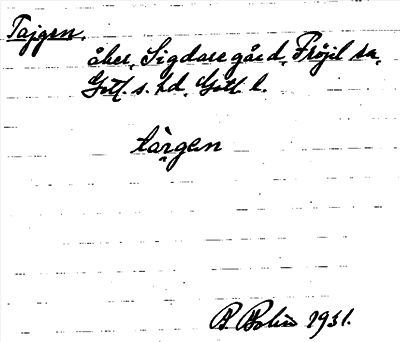 Tajgen.
åker, Sigdare gård, Fröjil sn,
Gotl. s. hd, Gotl. l.
tàrgen
B. Bolin 1931.